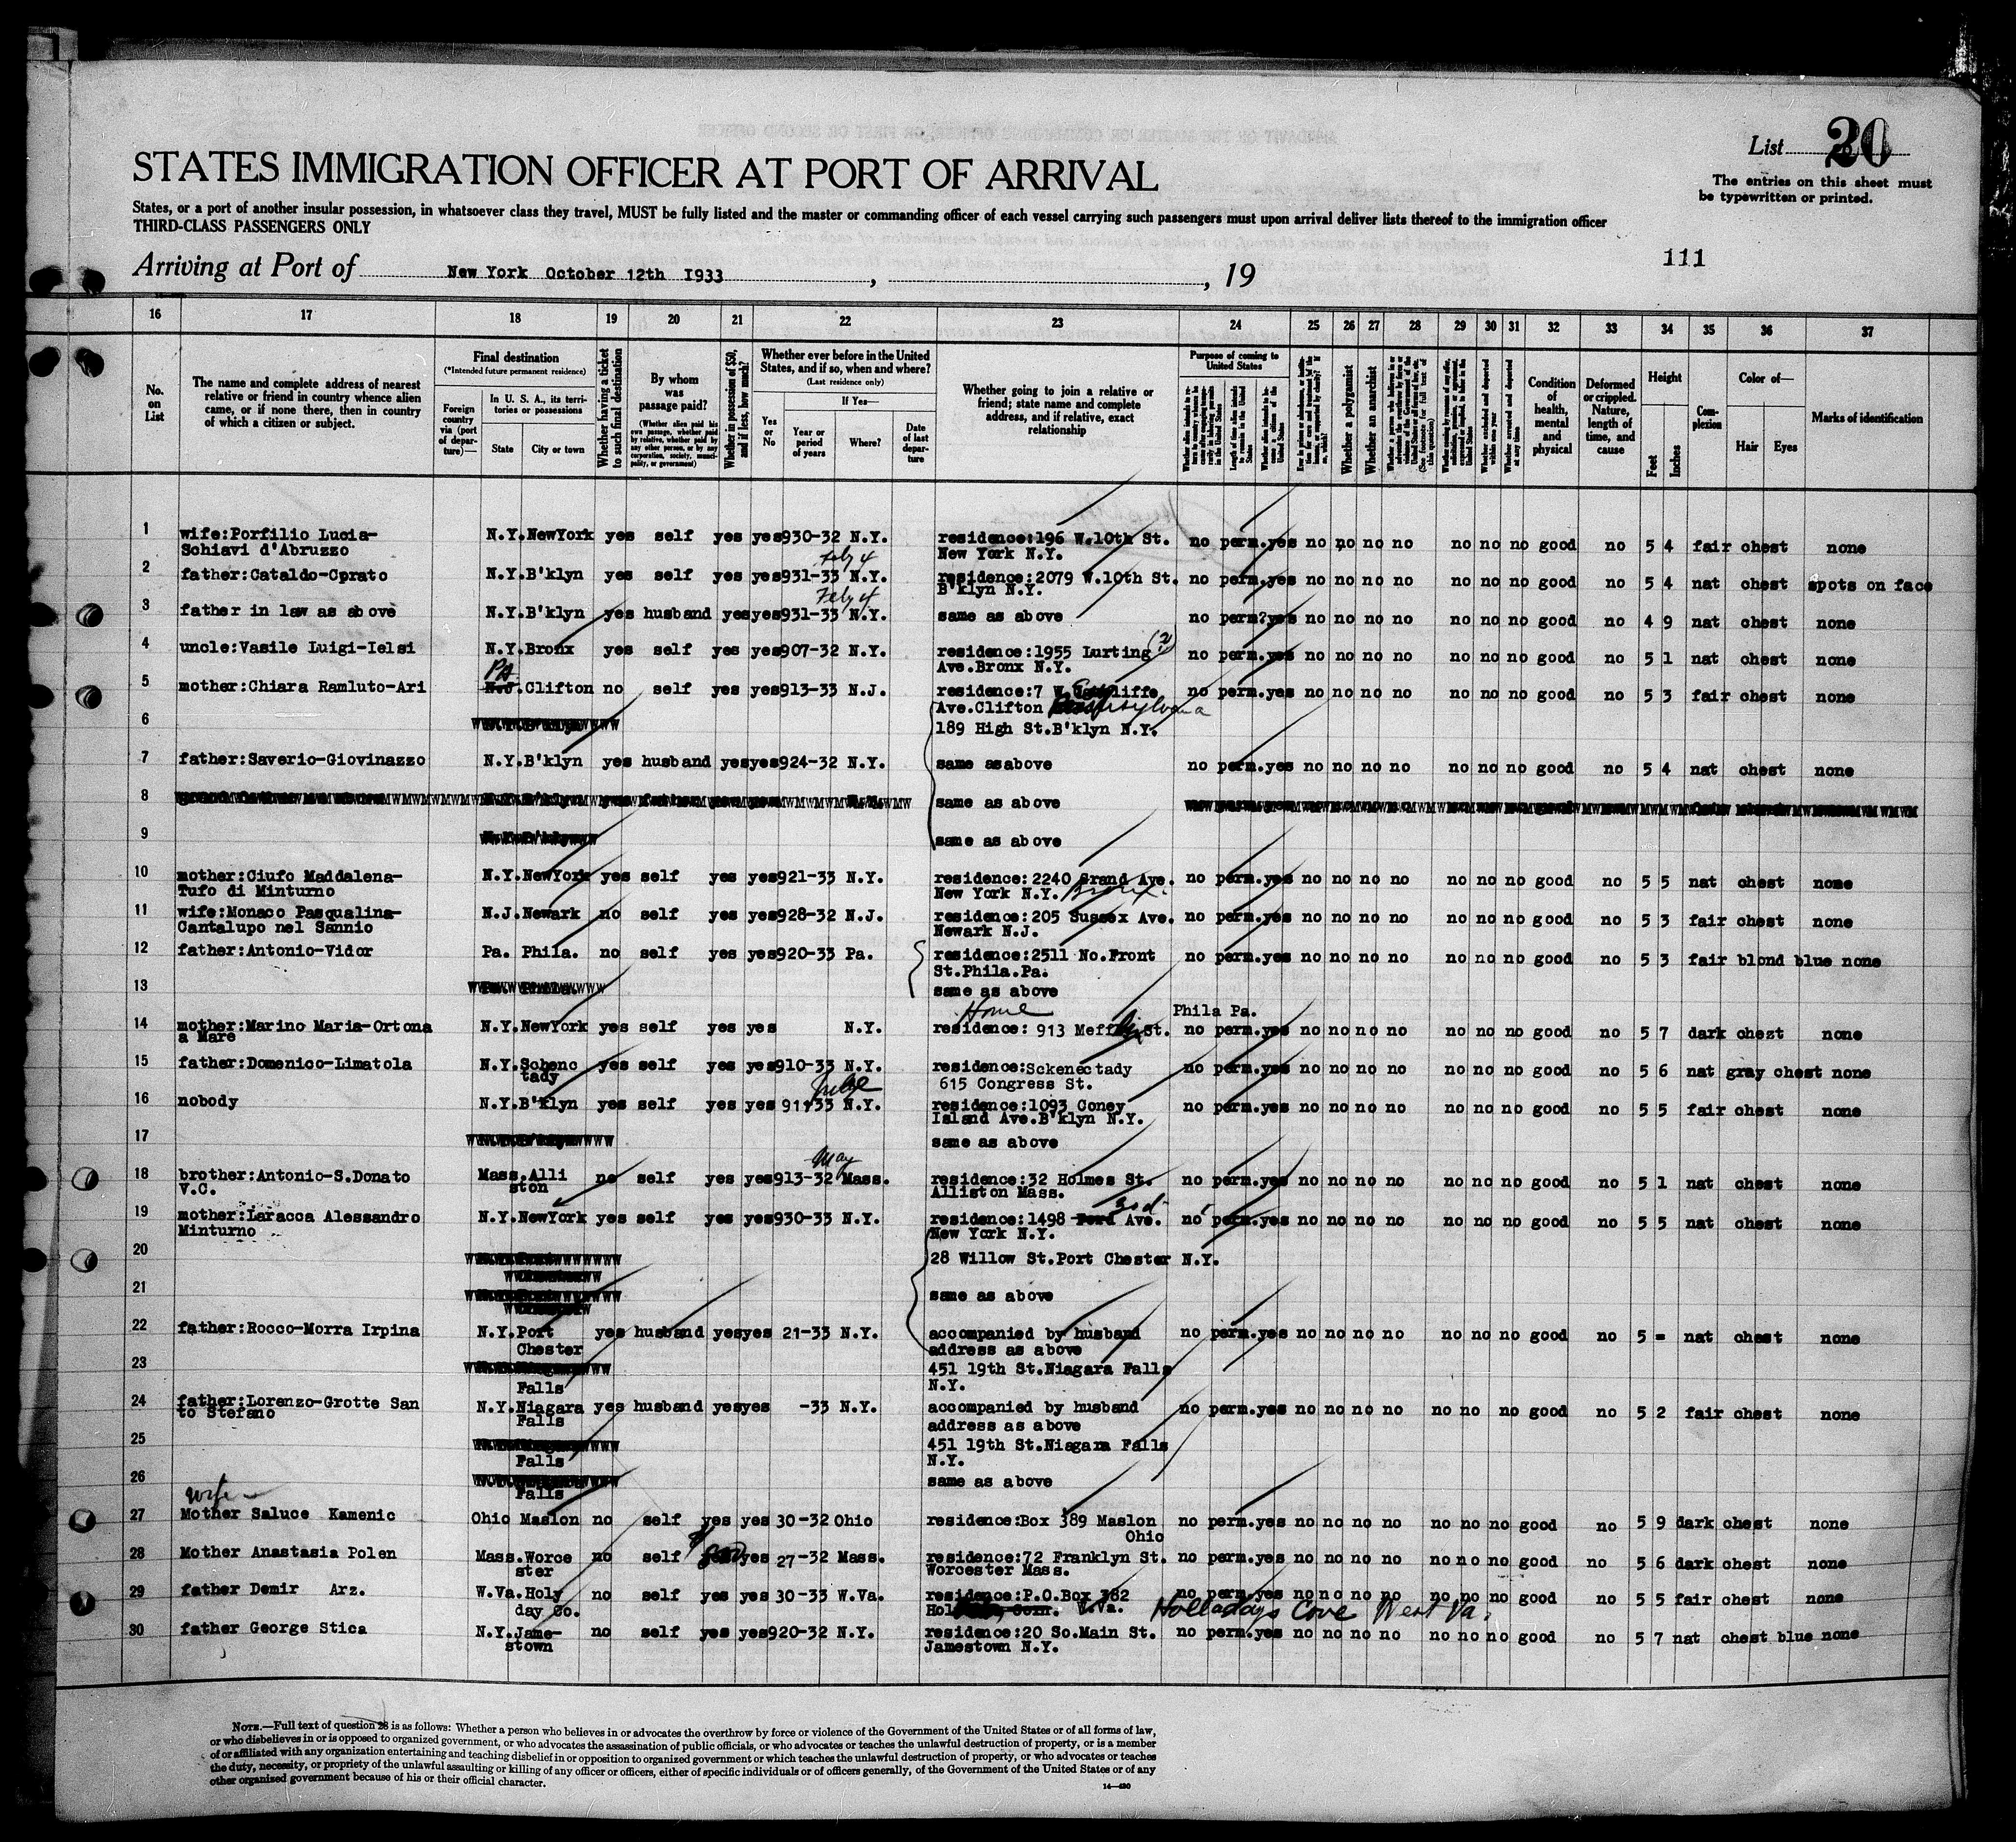 List 20
The entries on this sheet must
be typewritten or printed.
STATES IMMIGRATION OFFICER AT PORT OF ARRIVAL
States, or a port of another insular possession, in whatsoever class they travel, MUST be fully listed and the master or commanding officer of each vessel carrying such passengers must upon arrival deliver lists thereof to the immigration officer
THIRD-CLASS PASSENGERS ONLY
111
Arriving at Port of New York October 12th 1933, , 19
16 17 18 19 20 21 22 23 24 25 26 27 28 29 30 31 32 33 34 35 36 37
No. on List
The name and complete address of nearest relative or friend in country whence alien came, or if none there, then in country of which a citizen or subject.
Final destination
(*Intended future permanent residence)
Foreign country via (port of departure)—
In U. S. A., its territories or possessions
State City or town
Whether having a ticket to such final destination
By whom was passage paid?
(Whether alien paid his own passage, whether paid by relative, whether paid by any other person, or by any corporation, society, municipality, or government)
Whether in possession of $50, and if less, how much?
Whether ever before in the United States, and if so, when and where?
(Last residence only)
Yes or No
If Yes—
Year or period of years
Where?
Date of last departure
Whether going to join a relative or friend; state name and complete address, and if relative, exact relationship
Purpose of coming to United States
Length of time alien intends to remain in the United States
Whether alien intends to become a citizen of the United States
Whether a polygamist
Whether an anarchist
Condition of health, mental and physical
Deformed or crippled. Nature, length of time, and cause
Height
Feet Inches
Complexion
Color of—
Hair Eyes
Marks of identification
1 wife:Porfilio Lucia- N.Y.NewYork yes self yes yes930-32 N.Y. residence:196 W.10th St. no perm.yes no no no no no no no good no 5 4 fair chest none
Schiavi d'Abruzzo New York N.Y.
Feby 4
2 father:Cataldo-Cprato N.Y.B'klyn yes self yes yes931-33 N.Y. residence:2079 W.10th St. no perm.yes no no no no no no no good no 5 4 nat chest spots on face
B'klyn N.Y.
Feby 4
3 father in law as above N.Y.B'klyn yes husband yesyes931-33 N.Y. same as above no perm?yes no no no no no no no good no 4 9 nat chest none
4 uncle:Vasile Luigi-Ielsi N.Y.Bronx yes self yes yes907-32 N.Y. residence:1955 Lurting (2) no perm.yes no no no no no no no good no 5 1 nat chest none
Ave.Bronx N.Y.
PA
5 mother:Chiara Ramluto-Ari N.J.Clifton no self yes yes913-33 N.J. residence:7 W. no perm.yes no no no no no no no good no 5 3 fair chest none
Ave.Clifton
6 189 High St.B'klyn N.Y.
7 father:Saverio-Giovinazzo N.Y.B'klyn yes husband yesyes924-32 N.Y. same asabove no perm.yes no no no no no no no good no 5 4 nat chest none
8 same as above
9 same as above
10 mother:Ciufo Maddalena- N.Y.NewYork yes self yes yes921-33 N.Y. residence:2240 Grand Ave. no perm.yes no no no no no no no good no 5 5 nat chest none
Tufo di Minturno New York N.Y. Bronx.
11 wife:Monaco Pasqualina- N.J.Newark no self yes yes928-32 N.J. residence:205 Sussex Ave. no perm.yes no no no no no no no good no 5 3 fair chest none
Cantalupo nel Sannio Newark N.J.
12 father:Antonio-Vidor Pa. Phila. no self yes yes920-33 Pa. residence:2511 No.Front no perm.yes no no no no no no no good no 5 3 fair blond blue none
St.Phila.Pa.
13 same as above
Home Phila Pa.
14 mother:Marino Maria-Ortona N.Y.NewYork yes self yes yes N.Y. residence: 913 St. no perm.yes no no no no no no no good no 5 7 dark chest none
a Mare
15 father:Domenico-Limatola N.Y.Schenc yes self yes yes910-33 N.Y. residence:Sckenectady no perm.yes no no no no no no no good no 5 6 nat gray chest none
tady 615 Congress St.
16 nobody N.Y.B'klyn yes self yes yes 911-33 N.Y. residence:1093 Coney no perm.yes no no no no no no no good no 5 5 fair chest none
Island Ave.B'klyn N.Y.
17 same as above
May
18 brother:Antonio-S.Donato Mass.Alli no self yes yes913-32 Mass. residence:32 Holmes St. no perm.yes no no no no no no no good no 5 1 nat chest none
V.C. ston Alliston Mass.
3rd
19 mother:Laracca Alessandro N.Y.NewYork yes self yes yes930-33 N.Y. residence:1498 Ave. no perm.yes no no no no no no no good no 5 5 nat chest none
Minturno New York N.Y.
20 28 Willow St.Port Chester N.Y.
21 same as above
22 father:Rocco-Morra Irpina N.Y.Port yes husband yesyes 21-33 N.Y. accompanied by husband no perm.yes no no no no no no no good no 5 = nat chest none
Chester address as above
23 451 19th St.Niagara Falls
Falls N.Y.
24 father:Lorenzo-Grotte San N.Y.Niagara yes husband yesyes -33 N.Y. accompanied by husband no perm.yes no no no no no no no good no 5 2 fair chest none
to Stefano Falls address as above
25 451 19th St.Niagara Falls
Falls N.Y.
26 same as above
Falls
wife
27 Mother Saluce Kamenic Ohio Maslon no self yes yes 30-32 Ohio residence:Box 389 Maslon no perm.yes no no no no no no no good no 5 9 dark chest none
Ohio
28 Mother Anastasia Polen Mass.Worce no self yes 27-32 Mass. residence:72 Franklyn St. no perm.yes no no no no no no no good no 5 6 dark chest none
ster Worcester Mass.
29 father Demir Arz. W.Va.Holy no self yes yes 30-33 W.Va. residence:P.O.Box 382 no perm.yes no no no no no no no good no 5 5 fair chest none
day Co. Hol W.Va. Holladays Cove West Va.
30 father George Stica N.Y.Jame- no self yes yes920-32 N.Y. residence:20 So.Main St. no perm.yes no no no no no no no good no 5 7 nat chest blue none
stown Jamestown N.Y.
NOTE.—Full text of question 28 is as follows: Whether a person who believes in or advocates the overthrow by force or violence of the Government of the United States or of all forms of law,
or who disbelieves in or is opposed to organized government, or who advocates the assassination of public officials, or who advocates or teaches the unlawful destruction of property, or is a member
of or affiliated with any organization entertaining and teaching disbelief in or opposition to organized government or which teaches the unlawful destruction of property, or who advocates or teaches
the duty, necessity, or propriety of the unlawful assaulting or killing of any officer or officers, either of specific individuals or of officers generally, of the Government of the United States or of any
other organized government because of his or their official character.
14—430